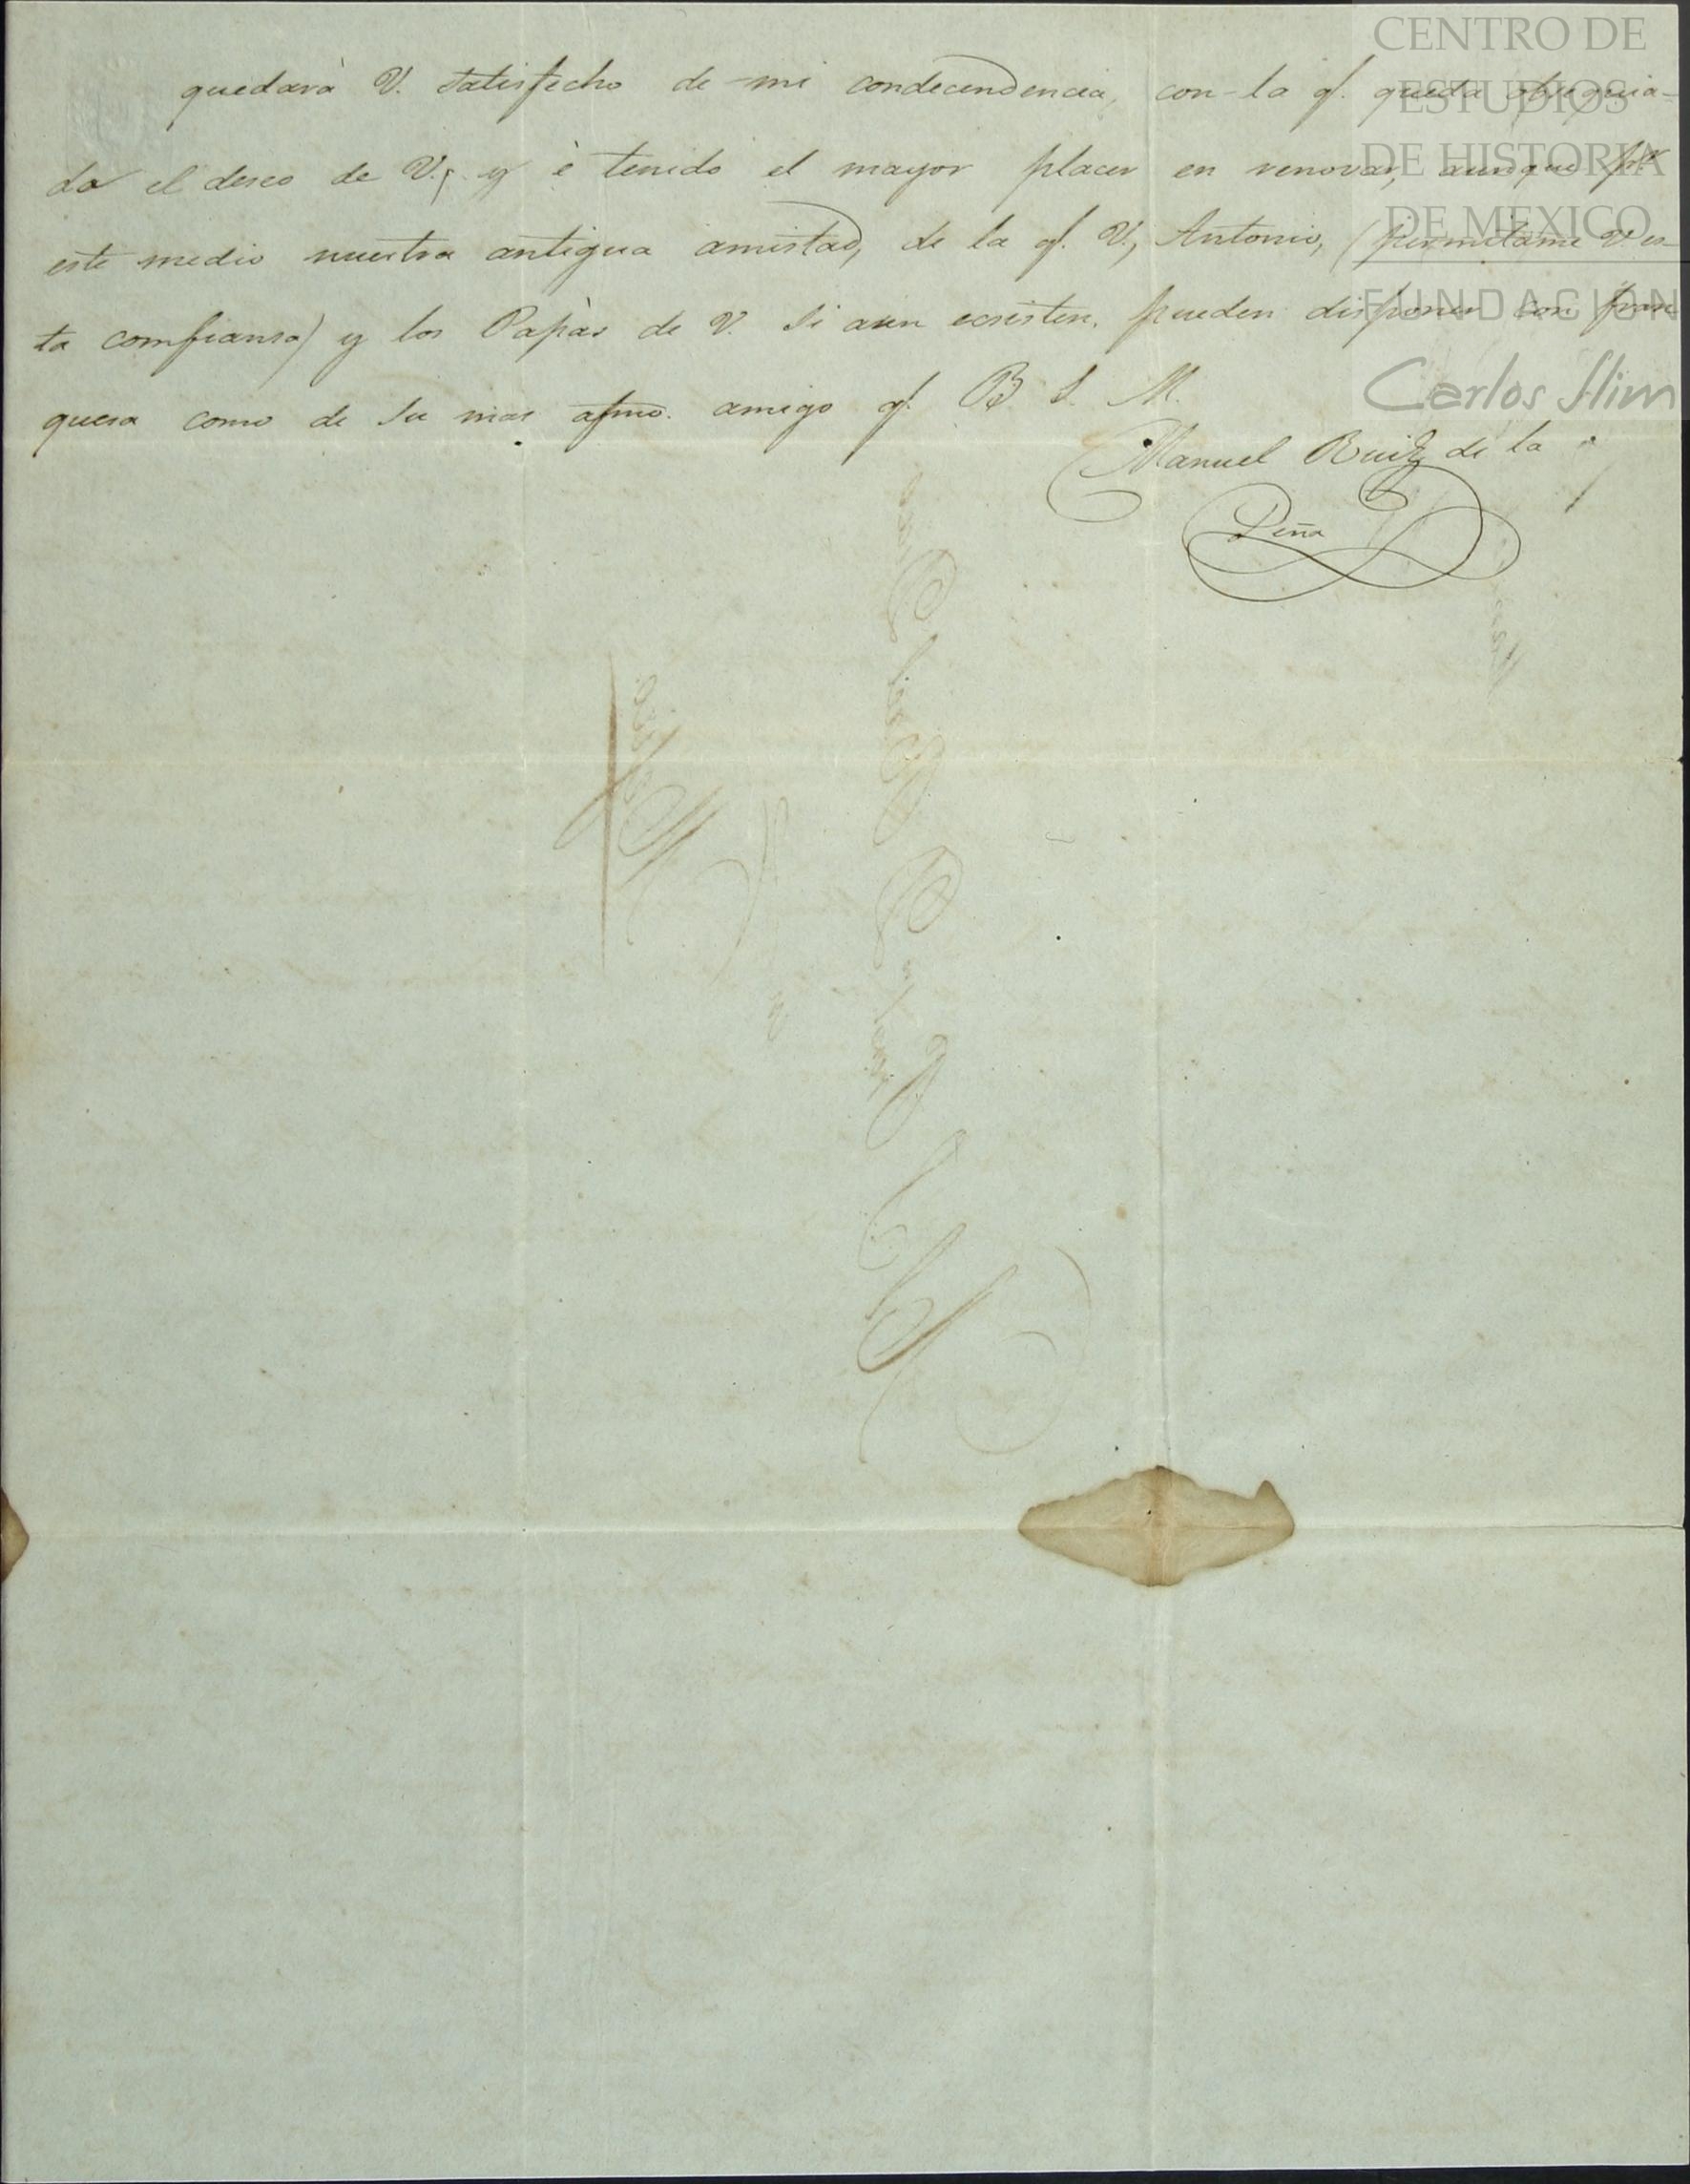 quedarà V. satisfecho de mi condecendencia, con la q. queda obsequia-
do el deseo de V., y è tenido el mayor placer en renovar, aunque pr.
este medio nuestra antigua amistad, de la q. V., Antonio, (permitame V es-
ta comfiansa) y los Papàs de V. si aun ecsisten, pueden disponer con fran
quesa como de su mas afmo. amigo q. B. S. M.
Manuel Ruiz de la
Peña
CENTRO DE
ESTUDIOS
DE HISTORIA
DE MEXICO
FUNDACION
Carlos Slim